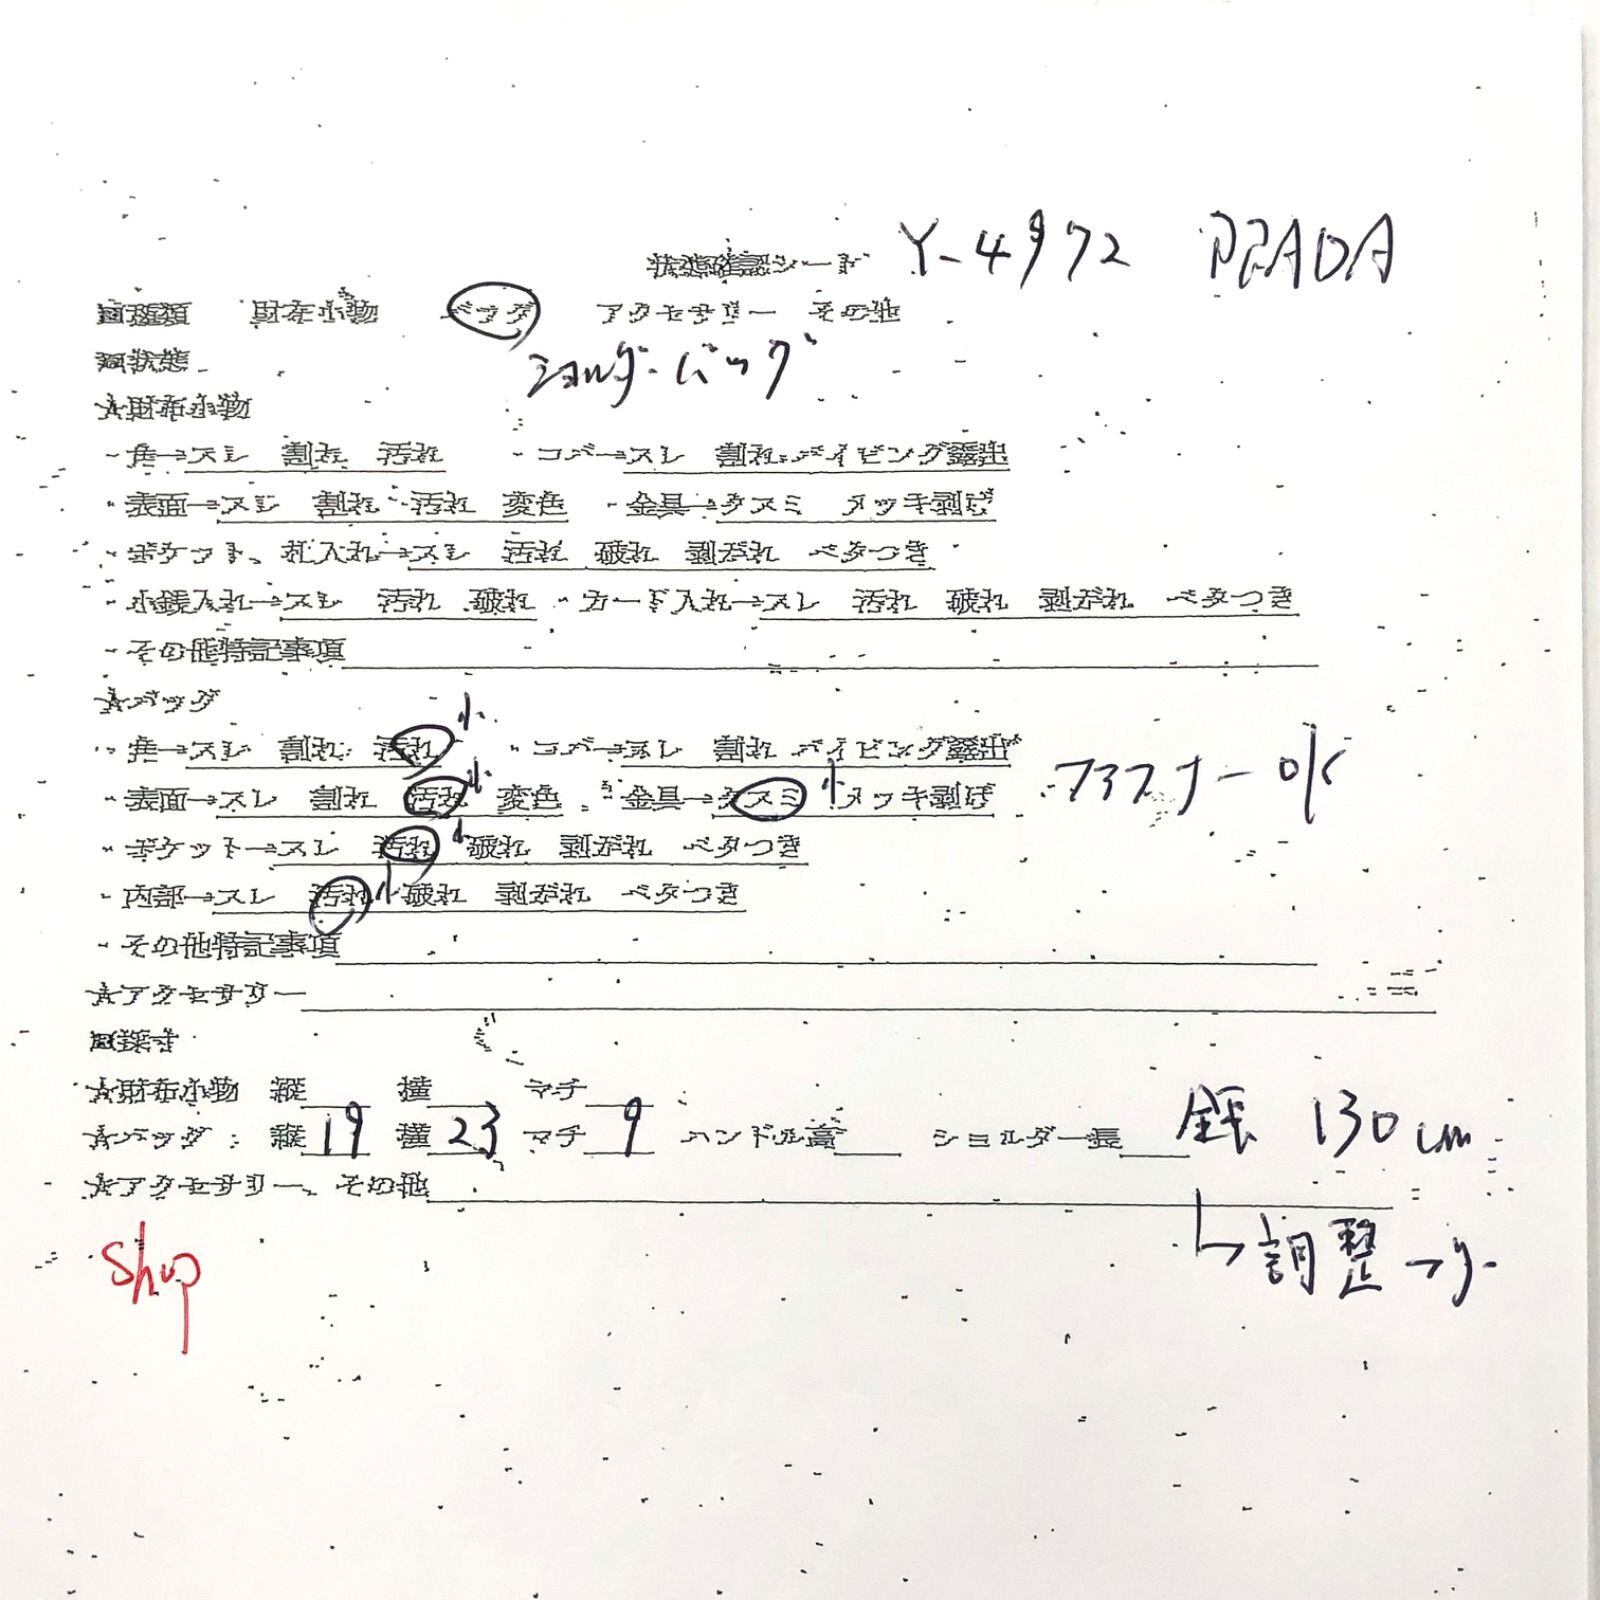 状態確認シート Y-4972 PRADA
□種類 財布小物 バッグ アクセサリー その他
ショルダーバッグ
□状態
☆財布小物
・角→スレ 割れ 汚れ ・コバ→スレ 割れ パイピング露出
・表面→スレ 割れ 汚れ 変色 ・金具→クスミ メッキ剥げ
・ポケット、札入れ→スレ 汚れ 破れ 剥がれ ベタつき
・小銭入れ→スレ 汚れ 破れ ・カード入れ→スレ 汚れ 破れ 剥がれ ベタつき
・その他特記事項
☆バッグ
・角→スレ 割れ 汚れ 小 ・コバ→スレ 割れ パイピング露出
・表面→スレ 割れ 汚れ 小 変色 ・金具→クスミ 小 メッキ剥げ ファスナーOK
・ポケット→スレ 汚れ 小 破れ 剥がれ ベタつき
・内部→スレ 汚れ 小 破れ 剥がれ ベタつき
・その他特記事項
☆アクセサリー
□採寸
☆財布小物 縦 横 マチ
☆バッグ: 縦 19 横 23 マチ 9 ハンドル高 ショルダー長 全長 130cm
☆アクセサリー、その他
↳調整フリー
Shop